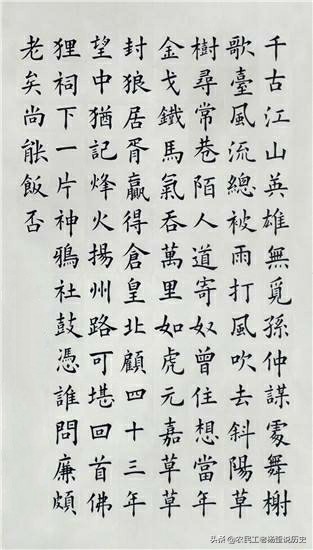 千古江山英雄無覓孫仲謀處舞榭
歌臺風流總被雨打風吹去斜陽草
樹尋常巷陌人道寄奴曾住想當年
金戈鐵馬氣吞萬里如虎元嘉草草
封狼居胥贏得倉皇北顧四十三年
望中猶記烽火揚州路可堪回首佛
狸祠下一片神鴉社鼓憑誰問廉頗
老矣尚能飯否
头条 @农民工老杨歪说历史